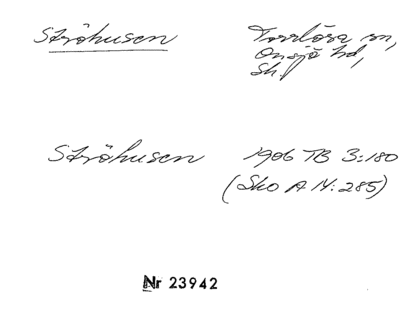 Ströhusen Torrlösa sn,
Onsjö hd,
Sk.
Ströhusen 1906 TB 3:180
(Sko A 14:285)
Nr 23942